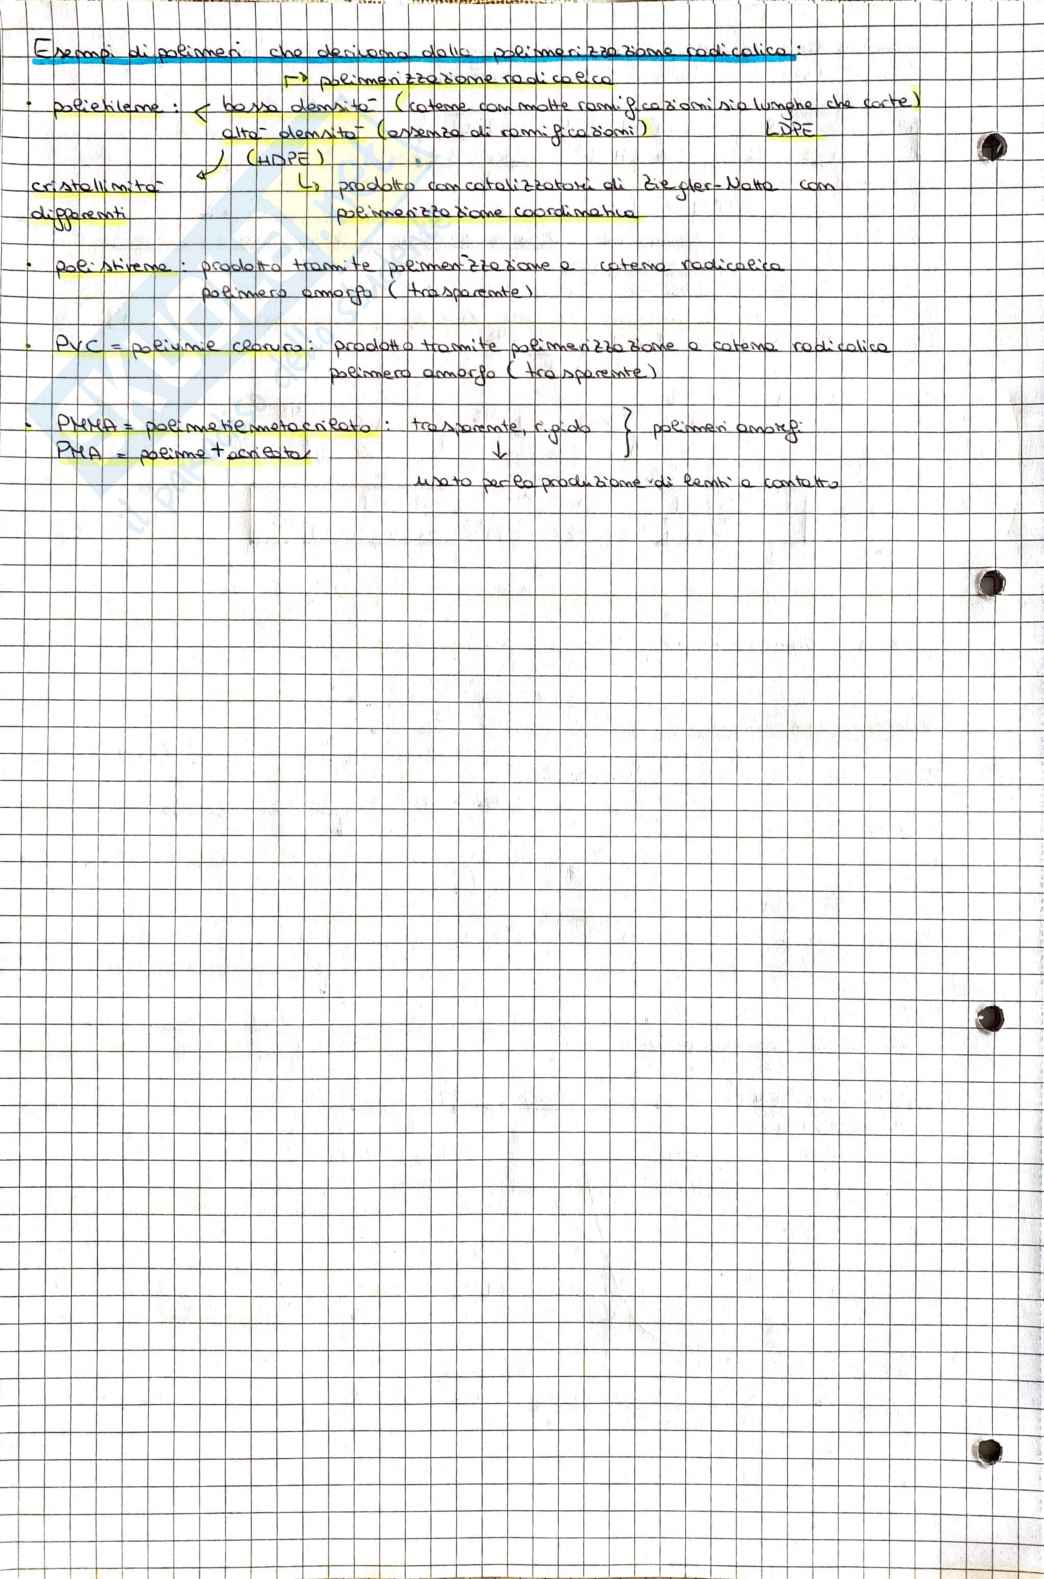 Esempi di polimeri che derivano dalla polimerizzazione radicalica:
↱ polimerizzazione radicalica
· polietilene: < bassa densità (catene con molte ramificazioni sia lunghe che corte)
alta densità (assenza di ramificazioni) LDPE
(HDPE)
cristallinità ↳ prodotto con catalizzatori di Ziegler-Natta con
differenti polimerizzazione coordinativa
· polistirene: prodotto tramite polimerizzazione a catena radicalica
polimero amorfo (trasparente)
· PVC = polivinil cloruro: prodotto tramite polimerizzazione a catena radicalica
polimero amorfo (trasparente)
· PMMA = polimetilmetacrilato: trasparente, rigido } polimeri amorfi
PMA = polimetacrilato ↓
usato per la produzione di lenti a contatto